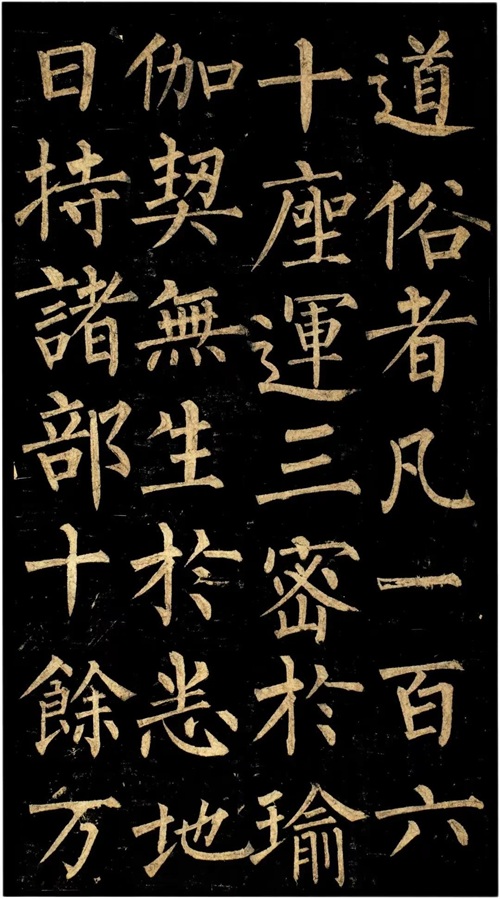 道俗者凡一百六
十座運三密於瑜
伽契無生於悉地
日持諸部十餘万